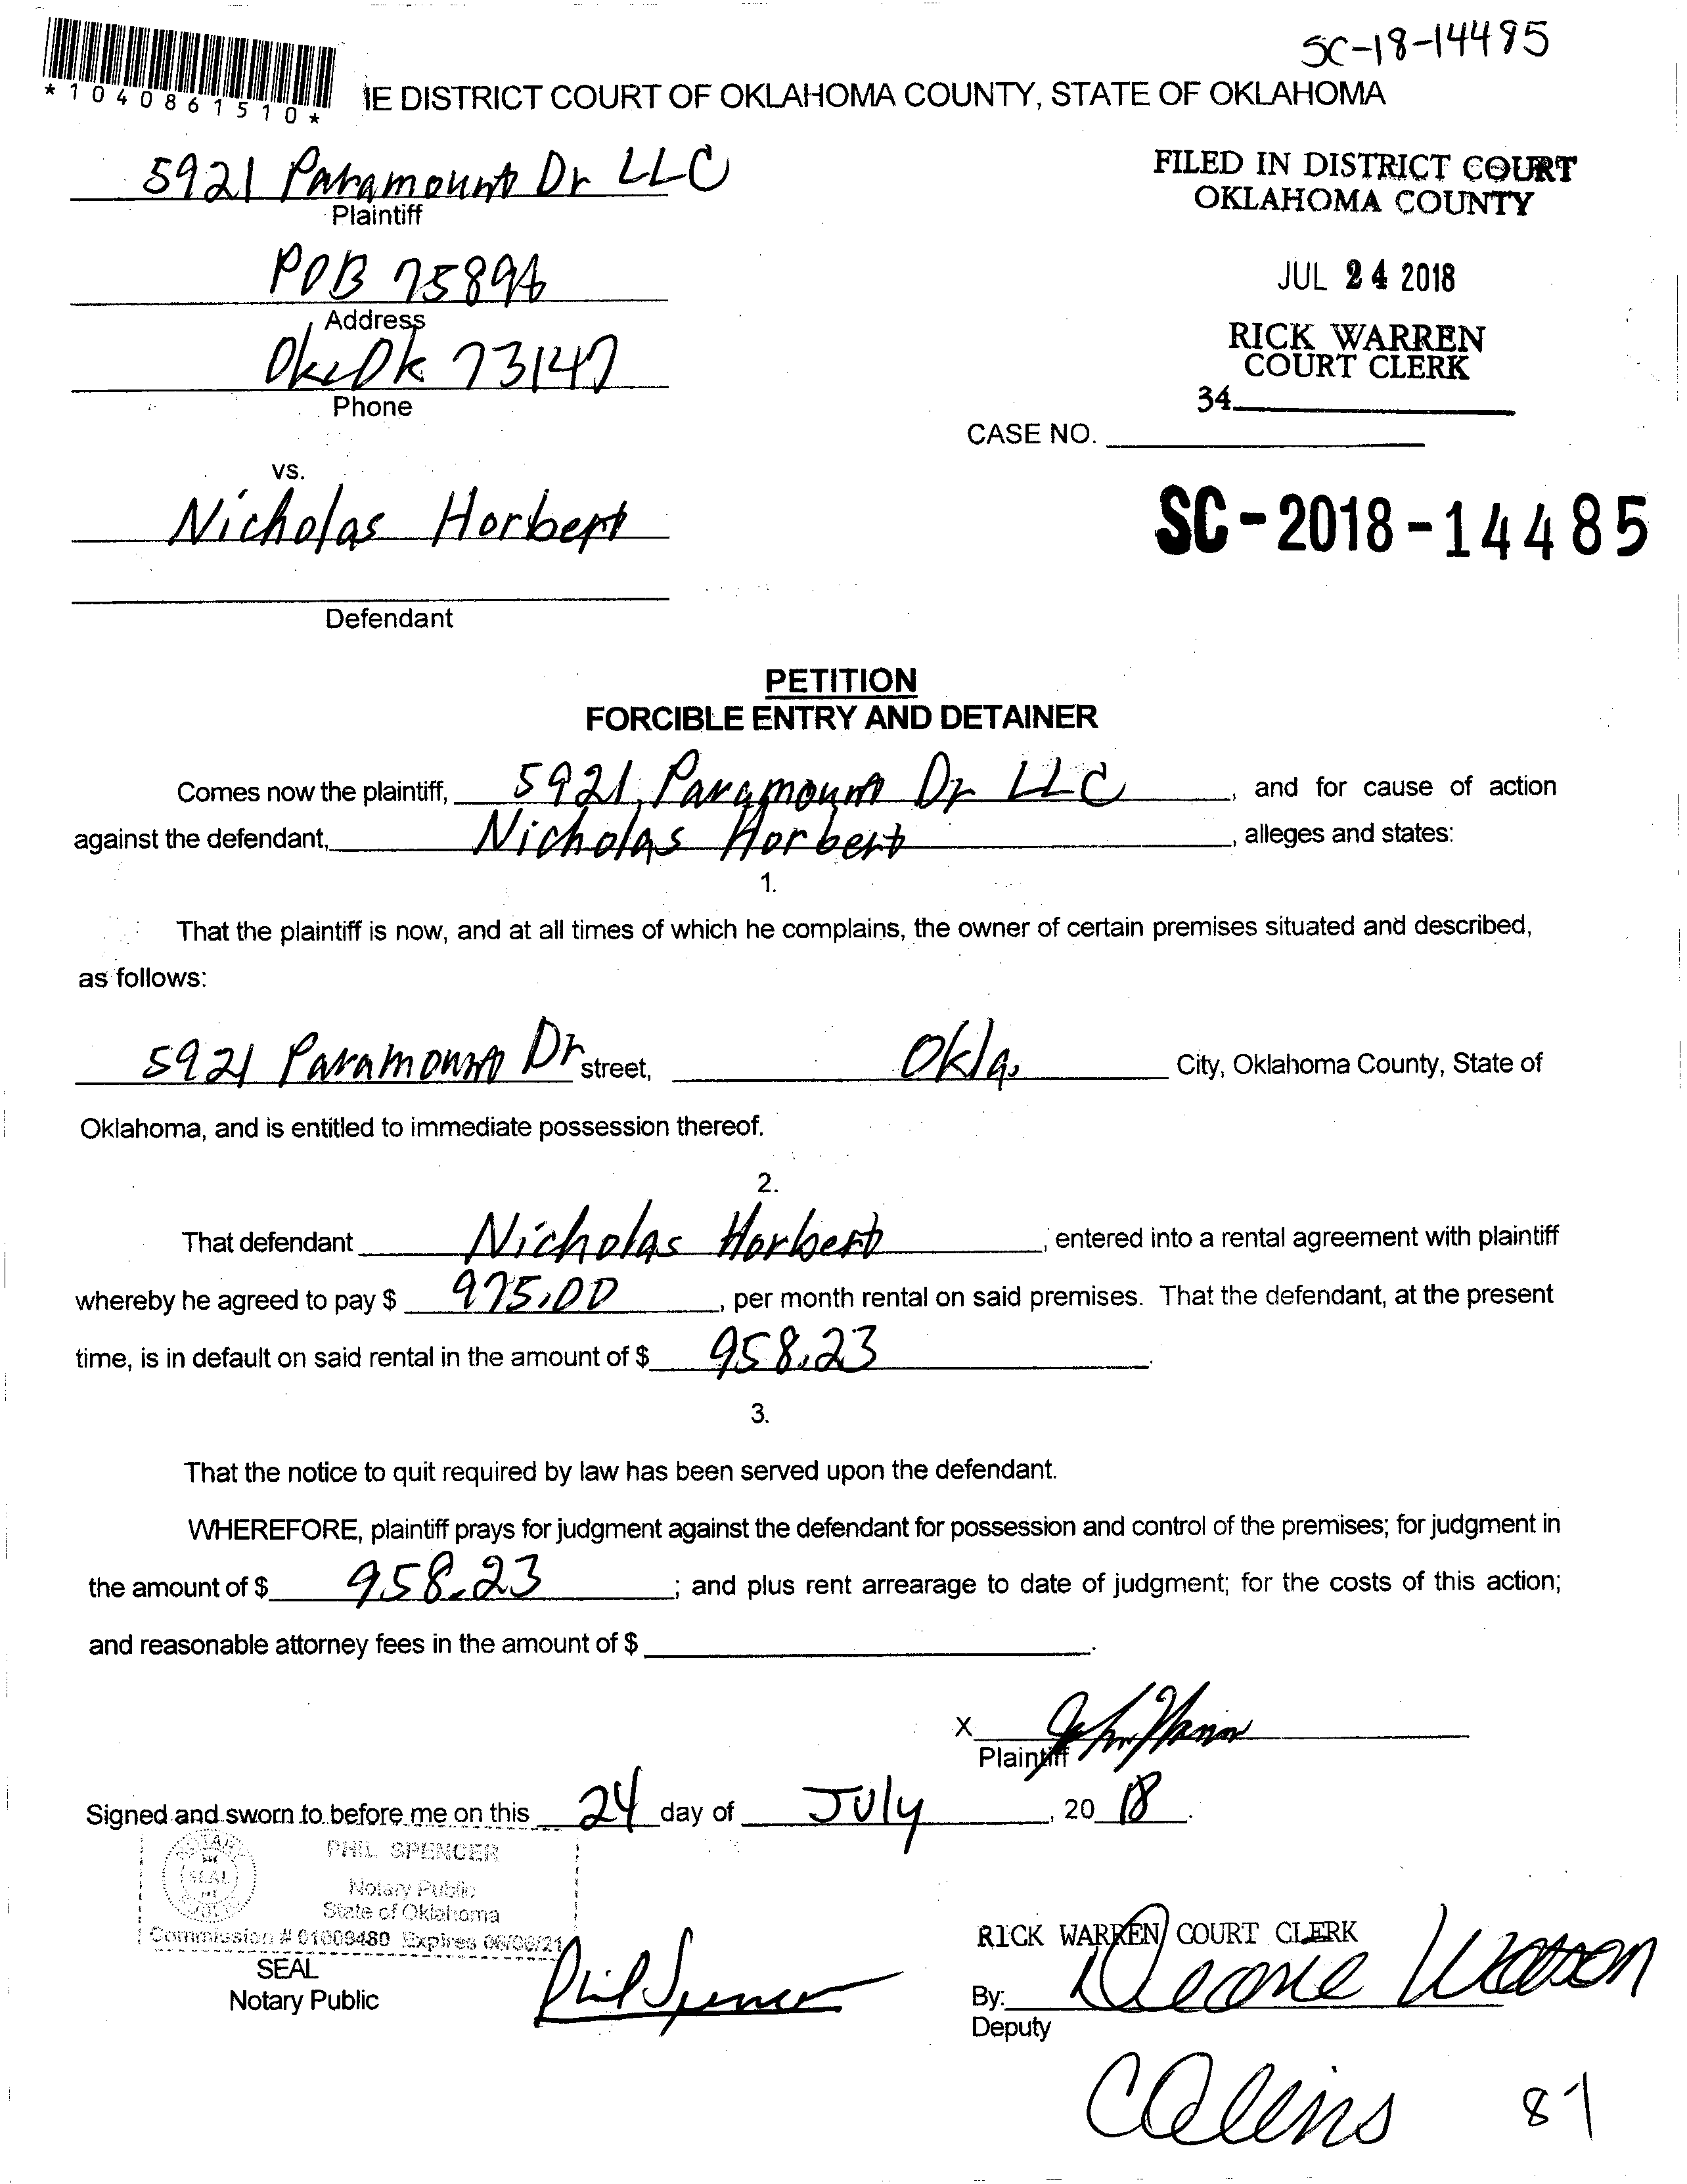 SC-18-14485
*1040861510*
IE DISTRICT COURT OF OKLAHOMA COUNTY, STATE OF OKLAHOMA
5921 Paramount Dr LLC
Plaintiff
FILED IN DISTRICT COURT
OKLAHOMA COUNTY
POB 75896
Address
JUL 24 2018
RICK WARREN
COURT CLERK
34
Okc Ok 73147
Phone
CASE NO.
vs.
Nicholas Horbert
SC-2018-14485
Defendant
PETITION
FORCIBLE ENTRY AND DETAINER
Comes now the plaintiff, 5921 Paramount Dr LLC, and for cause of action
against the defendant, Nicholas Horbert, alleges and states:
1.
That the plaintiff is now, and at all times of which he complains, the owner of certain premises situated and described,
as follows:
5921 Paramount Dr street, Okla. City, Oklahoma County, State of
Oklahoma, and is entitled to immediate possession thereof.
2.
That defendant Nicholas Horbert, entered into a rental agreement with plaintiff
whereby he agreed to pay $ 975.00, per month rental on said premises. That the defendant, at the present
time, is in default on said rental in the amount of $ 958.23.
3.
That the notice to quit required by law has been served upon the defendant.
WHEREFORE, plaintiff prays for judgment against the defendant for possession and control of the premises; for judgment in
the amount of $ 958.23; and plus rent arrearage to date of judgment; for the costs of this action;
and reasonable attorney fees in the amount of $.
X
Plaintiff
Signed and sworn to before me on this 24 day of July, 20 18.
PHIL SPENCER
NOTARY
SEAL
PUBLIC
Notary Public
State of Oklahoma
Commission # 01009480 Expires 06/06/21
SEAL
Notary Public
Phil Spencer
RICK WARREN, COURT CLERK
By:
Deputy
81